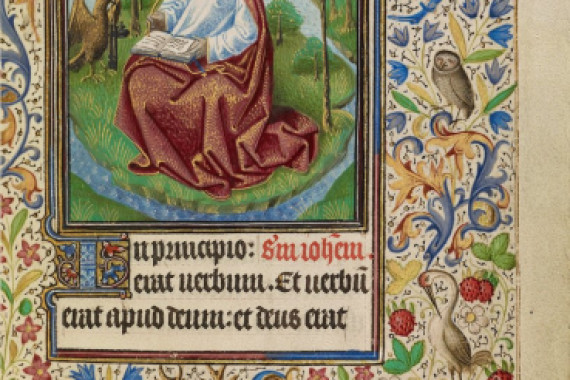 In principio: S'm ioh̃em.
erat uerbum. Et uerbũ
erat apud deum: et deus erat